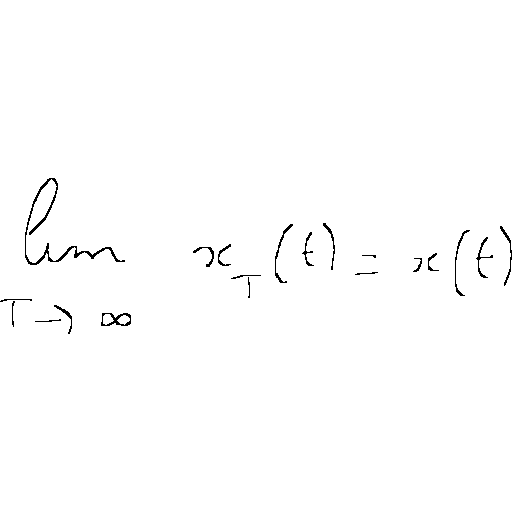 \lim_{T \to \infty} x_T(t) = x(t)